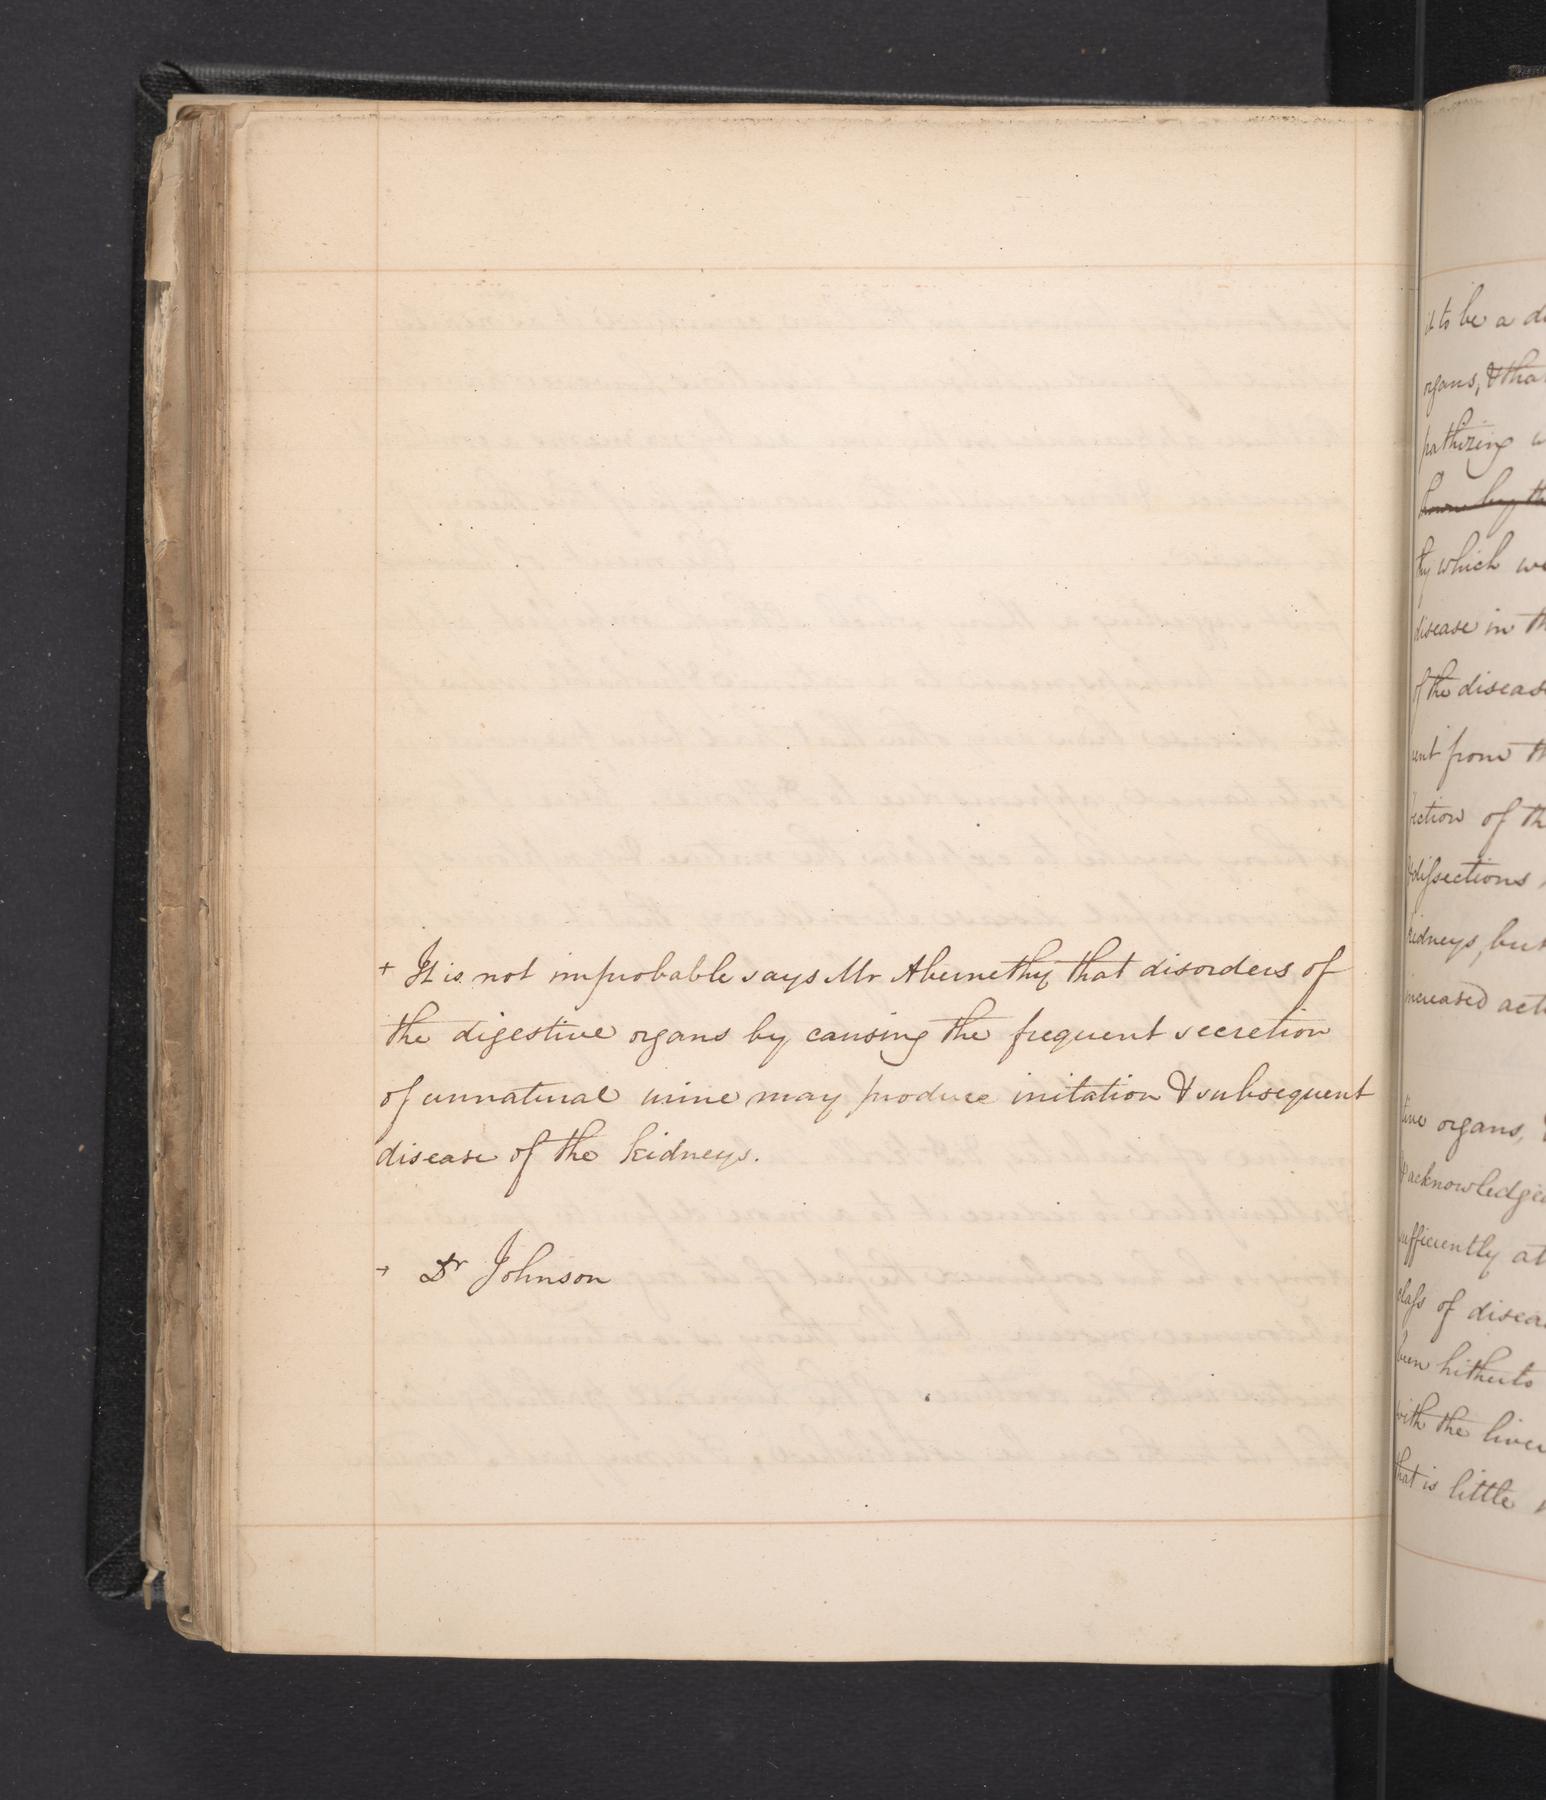 + It is not improbable says Mr Abernethy that disorders of
the digestive organs by causing the frequent secretion
of unnatural urine may produce irritation & subsequent
disease of the kidneys.
+ Dr Johnson
it to be a
organs, & tha
pathizing
by th
thy which we
disease in th
of the diseas
ent from th
ection of th
& dissections
kidneys, but
increased act
tive organs,
& acknowledge
sufficiently at
class of disea
been hitherto
with the liver
that is little